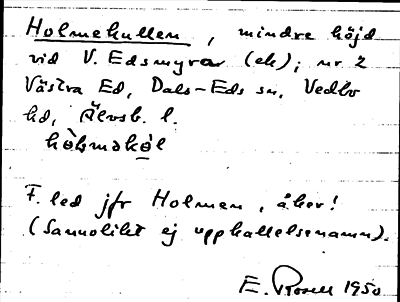 Holmekullen, mindre höjd
vid V. Edsmyrar (ek); nr. 2
Västra Ed, Dals-Eds sn, Vedbo
hd, Älvsb. l.
hòlməkə̀l
F. led jfr Holmen, åker!
(Sannolikt ej uppkallelsenamn).
E. 1950